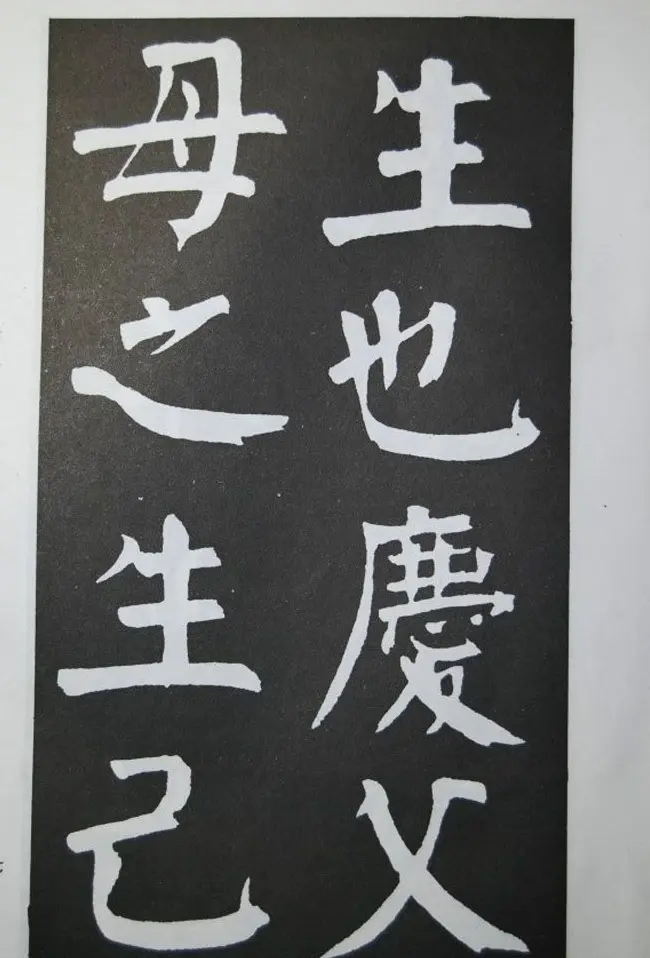 生也慶父
母之生己